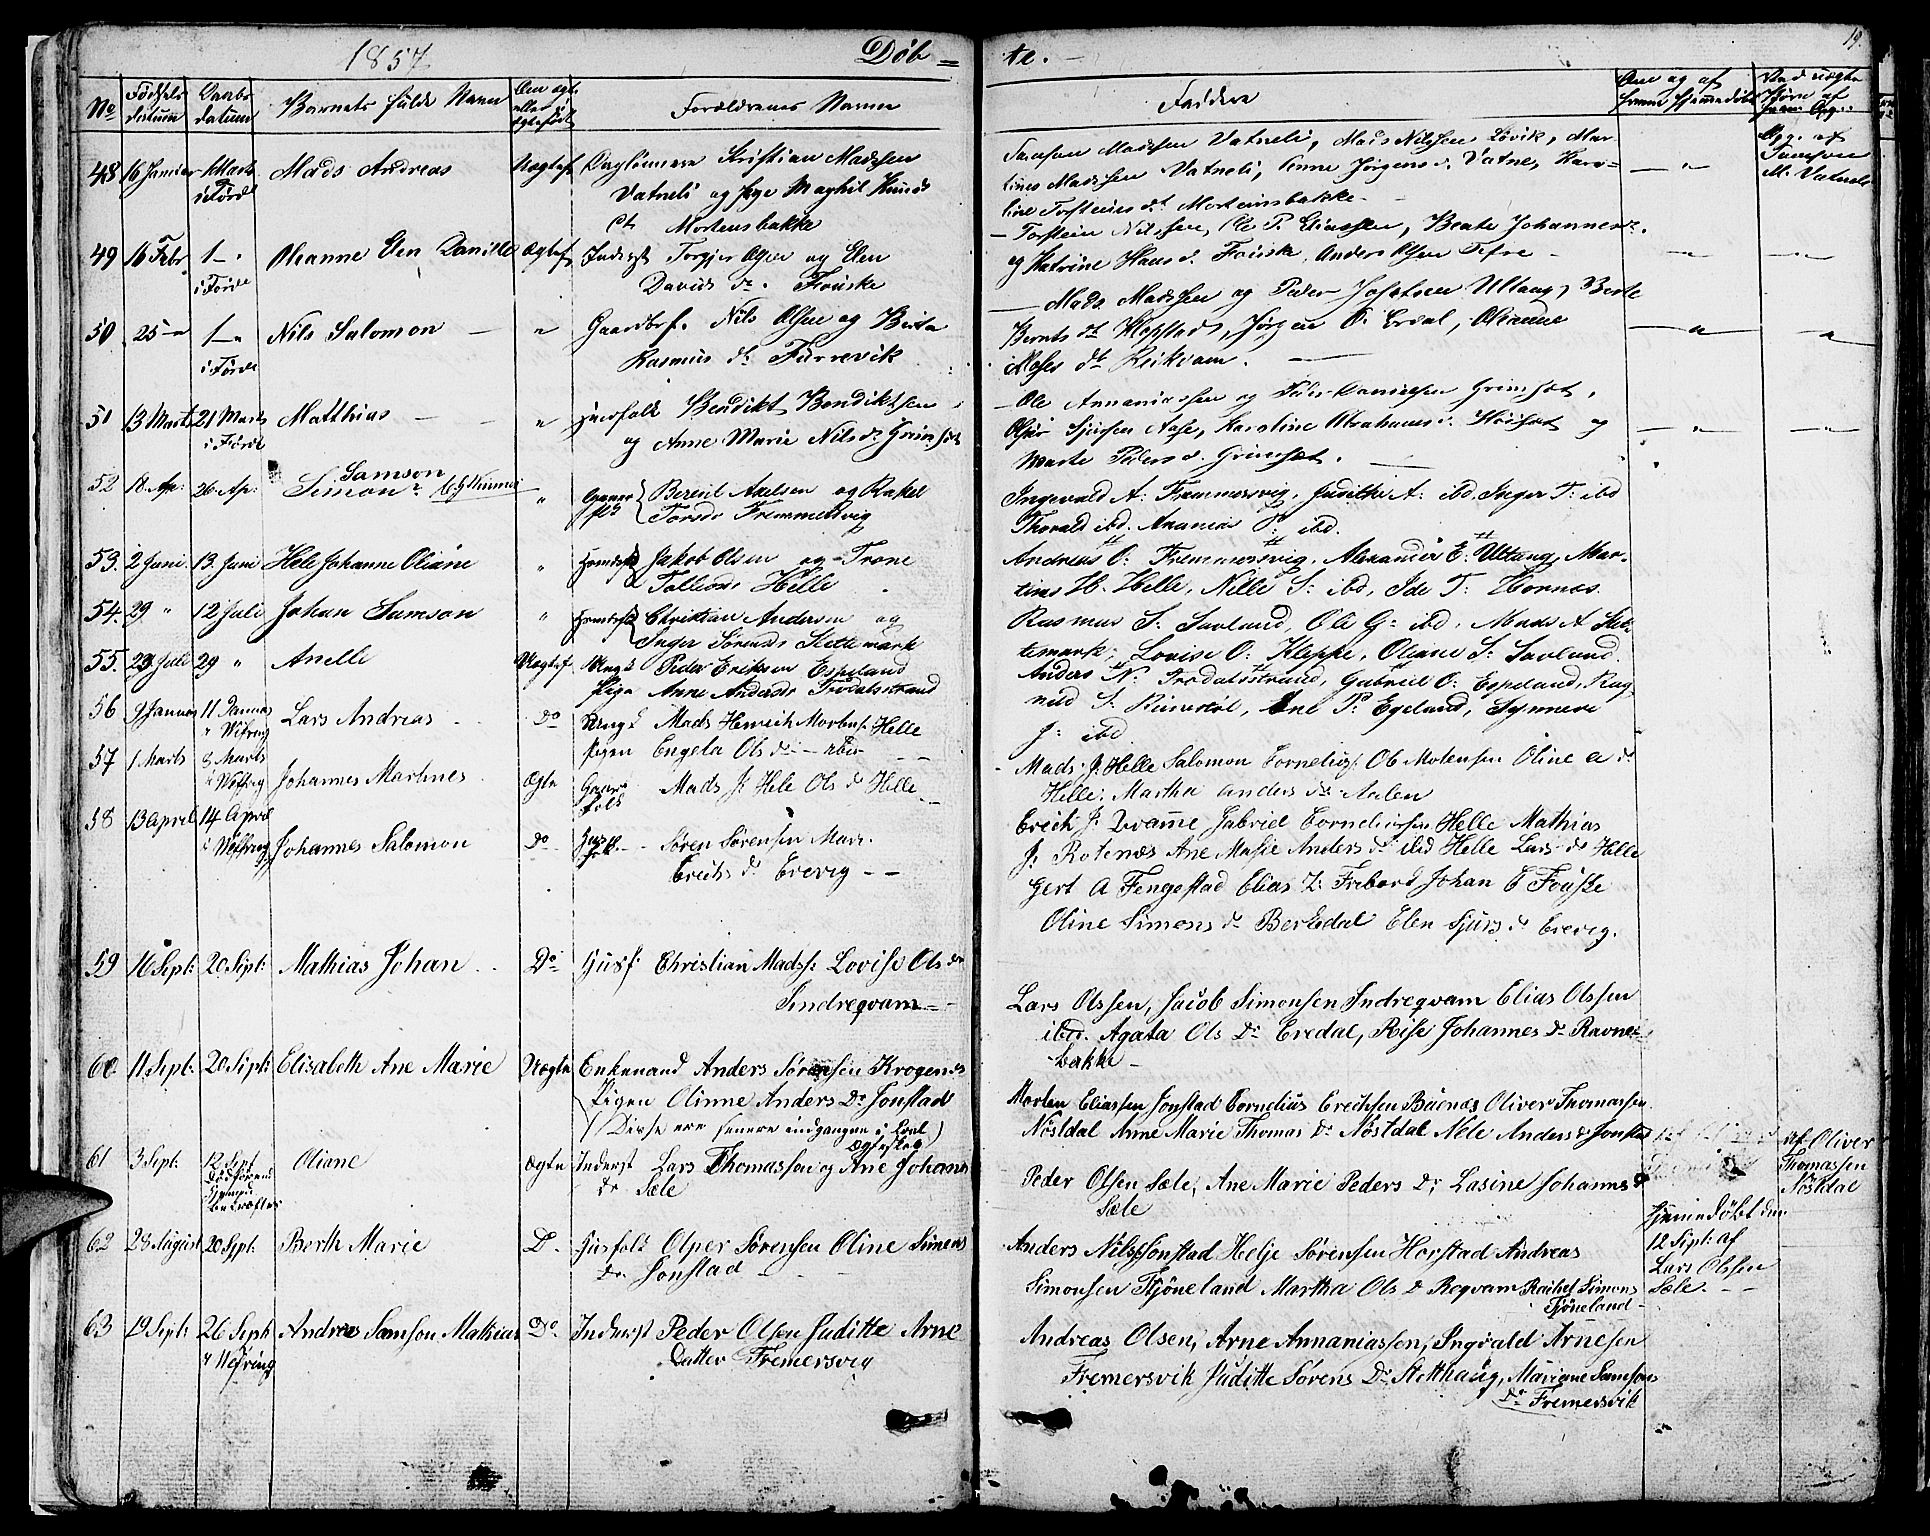 1857 Døb= te. 19
No Fødsels datum Daabs datum Barnets fulde Navn Om ægte eller uægtefødt Forældrenes Navne Faddere Om og af hvem hjemmedøbt
48 16 Januar 1 Marts i Førde Mads Andreas Uægtef Kristian Madsen
Vatneli og Mortensbakke
Samson Madssen Vatneli, Mads Nilssen Løvik, Mar-
tines Madssen Vatneli, Anne Jørgens d. Vatne, Karo=
line Torsteins dt Mortensbakke
Opg. af Samson M. Vatneli
49 16 Febr 1 — i Førde Oleanne Elen Danille Ægtef Inderst Torgjer Olsen og Elen
Davids dr. Fouske
Torstein Nilssen, Ole P. Eliassen, Beate Johannes dr.
og Katrine Hans d. Fouske, Anders Olsen Tefre
50 25 — 1 — i Førde Nils Salomon " Gaardbr. Nils Olsen og Berta
Rasmus dr. Furrevik
Mads Madssen og Peder Josefsen Ullaug, Berte
Bernts dt Klopstad, Jørgen O. Erdal, Olianne
Moses dt Reikvam.
51 13 Marts 21 Marts i Førde Matthias " Huusfolk Bendikt Bendiktsen
og Anne Marie Nils dr Grimset
Ole Annaniassen og Peder Danielsen Grimset,
Sjursen Aase, Karoline Abrahams d. Høiset og
Marte Peders d. Grimset.
52 18 Ap: 26 Ap: Simon Samson " Gaardfk Berent Axelsen og Rakel
Torsdr Fremmersvig
Ingevald A: Fremmersvig, Judithe A: ibd, Inger T: ibd
Thorald ibd. Ananias P: ibd
53. 2 Juni 13 Juni Hele Johanne Oliane " Jakob Olsen og Trone
Tollevs Helle
Andreas O: Fremmersvig, Alexander E: Ultang, Mar-
tines H. Helle, Nille S: ibd, Ide T: Hornæs.
54. 29 " 12 Juli Johan Samson " Christian Andersen og
Inger Sørensdr Slettemark
Rasmus S. Savland, Ole G: ibd, Mads A Slet-
temark, Lovise O: Kleppe, Oliane S: Savland.
55. 23 Juli 29 " Anelle Uægtef. Ungk Peder Eriksen Espeland
Pige Anne Andersdr Trodalsstrand
Anders N: Trodalsstrand, Gabriel O: Espeland, Rag
nild S. Rinestøl, Ane P: Egeland, Synneve
J: ibd
56 9 Januar 11 Januar i Wefring Lars Andreas Do Ungk Mads Henrich Mortens. Helle
Pigen Engela Ols dr — ibid
Mads J. Helle Salomon Cornelius. Ob Motensen Oline A dr
Helle, Martha Anders dr Aalen
57 1 Marts 8 Marts i Wefreg Johannes Martines Ægte Gaardfolk Mads J: Hele Ols dr Helle
Erech J. Qvamme Gabriel Corneliussen Helle Mathias
J. Rotenæs Ane Marie Anders dr ibid Helle Lars dr Helle
58 13 April 14 April i Wefreg Johannes Salomon Do Husfolk Søren Sørensen Mari
Erichs dr Erevig
Gert A Fengestad Elias Z. Frebord Johan E Fouske
Oline Simons dr Berkedal Elen Sjurs dr Erevig.
59 16 Sept: 20 Sept: Mathias Johan Do Husf Christian Madss: Lovise Ols dr
Indreqvam
Lars Olssen, Jacob Simonsen Indreqvam Elias Olssen
ibd. Agata Ols Dr Eredal, Roise Johannes Dr Ravne-
bakke
60 11 Sept: 20 Sept: Elisabeth Ane Marie Uægte Enkemand Anders Sørensen Krogenæs
Pigen Olinne Anders Dr Sonstad
(Disse ere senere indgangne i Lovl Ægteskab)
Morten Eliassen Sonstad Cornelius Erechsen Baenæs Oliver Thomassen
Nøstdal Anne Marie Thomas Dr Nøstdal Nele Anders dr Sonstad
af Oliver Thomassen Nøstdal
61 3 Sept: 12 Sept Oliane Ægte Inderst Lars Thomassen og Ane Johans
dr Sæle
Peder Olsen Sæle, Ane Marie Peders Dr, Lasine Johannes dr
Sæle
Hjemmedøbt den
12 Sept: af
Lars Olssen
Sæle.
62 28 August 20 Sept: Berth Marie D. Husfolk Olper Sørensen Oline Simens
dr Sonstad
Anders Nilss Sonstad Helje Sørensen Horstad Andreas
Simonsen Tjöneland Martha Ols Dr Reqvam Rachel Simons
Tjöneland
63 19 Sept: 26 Sept i Wefring Andreas Samson Mathias Do. Inderst Peder Olsen Juditte Arne
Datter Fremersvig
Andreas Olsen, Arne Annaniassen, Ingvald Arnesen
Fremersvik Juditte Sørens Dr Sletthaug, Mariane Samsons
Dr Fremersvik